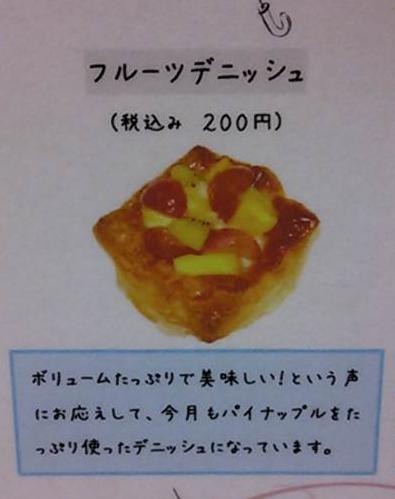 フルーツデニッシュ
(税込み 200円)
ボリュームたっぷりで美味しい!という声
にお応えして、今月もパイナップルをた
っぷり使ったデニッシュになっています。